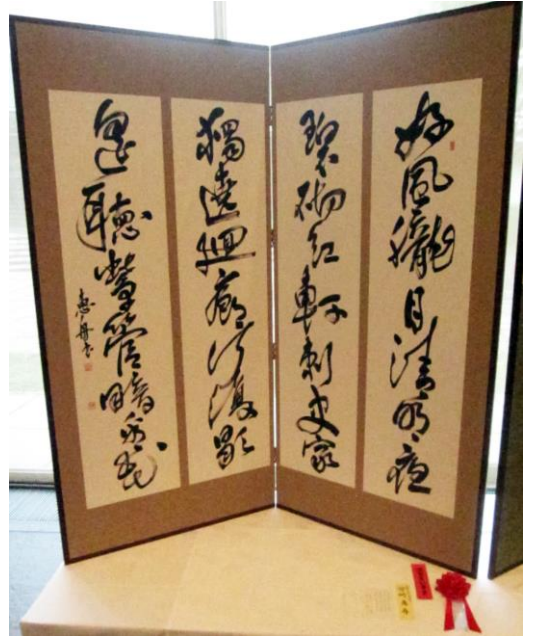 好風朧月清明夜
碧砌紅軒刺史家
獨遶廻廊行復歇
遥聴管暗看花